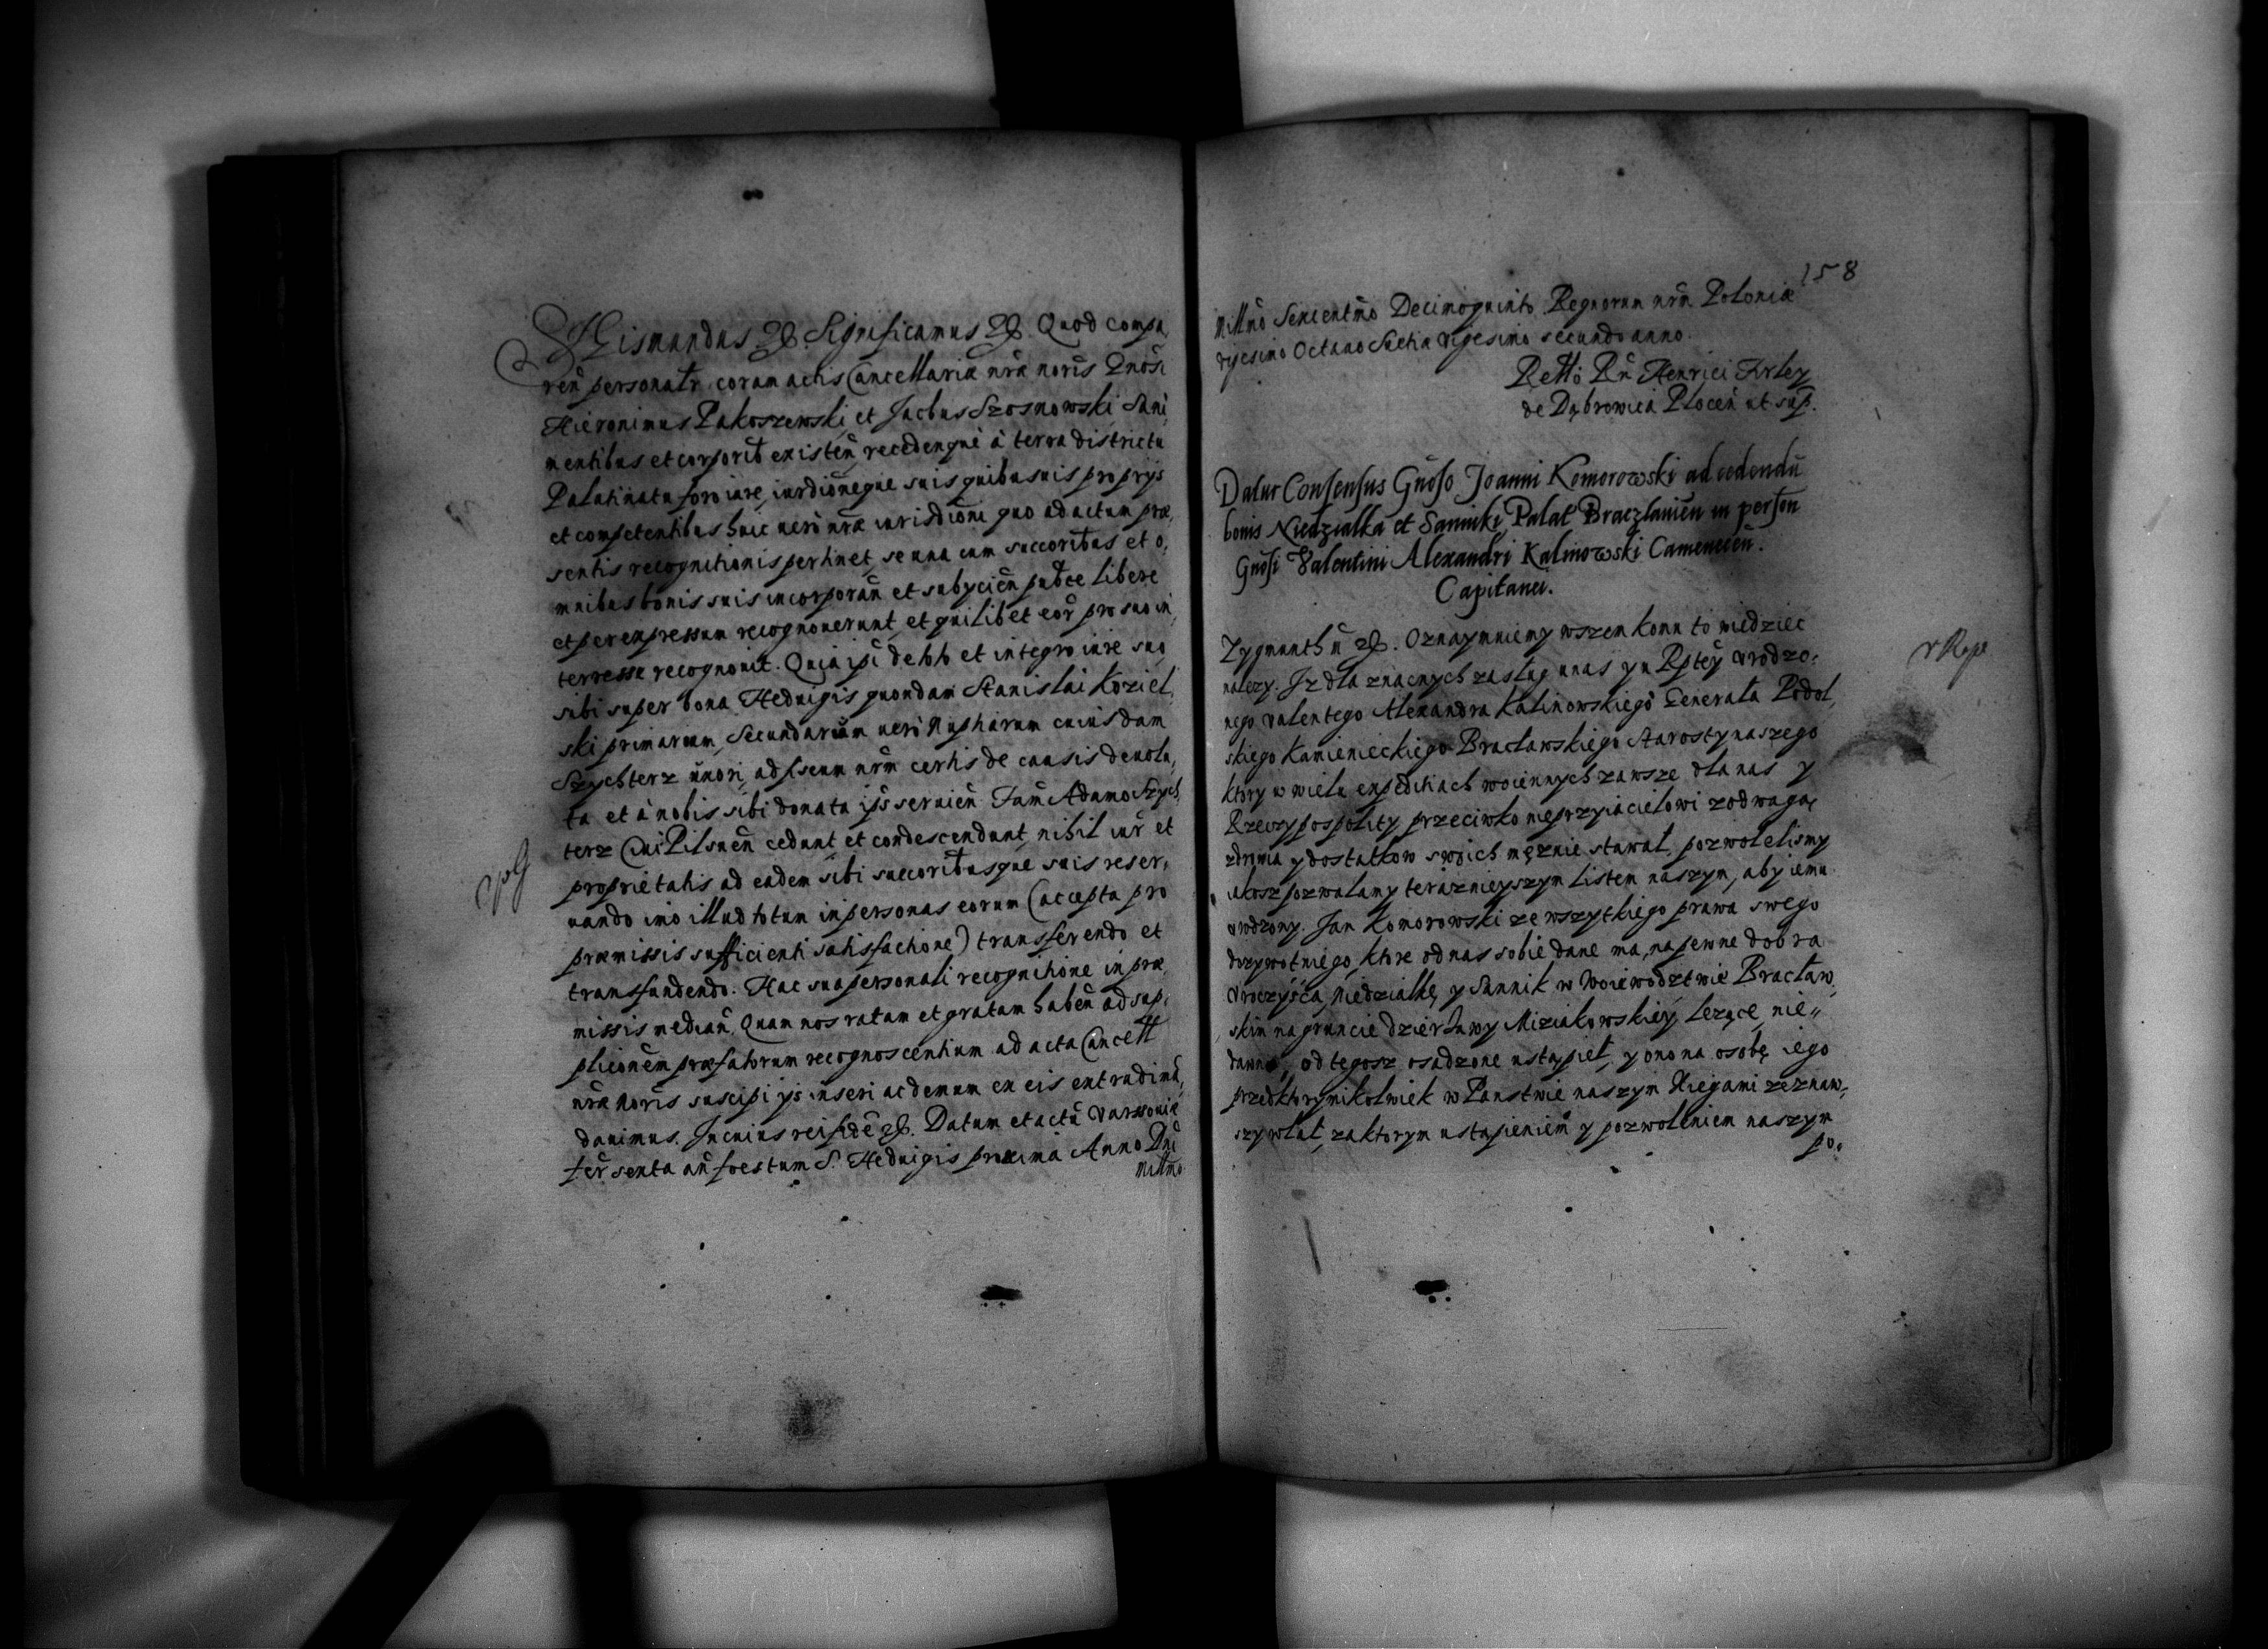 SIgismundus &c. Significamus &c. Quod compa,
ren̄ personalr̄ coram actis Cancellariæ nr̄æ noris Gnosi
Hieronimus Pakoszewski et Jacbus Szosnowski Sani
mentibus et corporib existen̄, recedenque à terra districtu
Palatinatu foro iure, iurdiōneque suis quibusuis proprys
et competentibus huic uerò nr̄æ iurisdiōni quo ad actum præ,
sentis recognitionis pertinet, se una cum succoribus et o,
mnibus bonis suis incorporan̄ et subycien̄ pubce libere
et per expressum recognouerunt, et quilibet eor̄ pro suo in,
teresse recognouit. Quia ipi de toto et integro iure suo
sibi super bona Heduigis quondam Stanislai Koziel,
ski primarium, Secundarium uerò Nuptiarum cuiusdam
Szychterz uxori, ad fiscum nr̄m certis de causis deuolu,
ta et à nobis sibi donata ijs seruien̄ Fam Adamo Szych,
terz Ciui Pilsnen̄ cedunt et condescendunt, nihil iur̄ et
proprietatis ad eadem sibi succoribusque suis reser,
uando imo illud totum in personas eorum (accepta pro
præmissis sufficienti satisfactione) transferendo et
transfundendo. Hac sua personali recognitione in præ,
missis median̄. Quam nos ratam et gratam haben̄ ad sup,
pliconem præfatorum recognoscentium ad acta Cancell
nr̄æ noris suscipi ijs inseri ac demum ex eis extradi man,
dauimus. In cuius rei fidē &c. Datum et actū Varsouiæ
fer̄ sexta an̄ foestum S. Heduigis proxima Anno Dni
Millmo
158
Millmo Sexcentmo Decimoquinto, Regnorum nrm Poloniæ
vigesimo Octauo Sætiæ vigesimo secundo anno.
Relló Rn̄ Henrici Firley
de Dąbrowica Plocen̄ ut sup.
Datur Consensus Gnoso Joanni Komorowski ad cedendū
bonis Niedzialka et Sannik Palat Braczlauien̄ in person
Gnosi Valentini Alexandri Kalinowski Camenecen̄.
Capitanei.
Zygmunth ū &c. Oznaymuiemy wszem komu to wiedziec
nalezy. Jz dla znacnych zasług u nas y u Rptey vrodzo:
nego valentego Alexandra Kalinowskiego Generała Podol,
skiego Kamienieckiego Bracławskiego Starosty naszego
ktory w wielu expeditiach woiennych zawsze dla nas y
Rzeczypospolity przeciwko nieprzyiacielowi z odwagą
zdrowia y dostatkow swoich mężnie stawał, pozwolelismy
iakosz pozwalamy teraznieyszym Listem naszym, aby iemu
vrodzony Jan Komorowski ze wszytkiego prawa swego
dozywotniego, ktore od nas sobie dane ma, na pewne dobra
vroczyscá, Niedzialkę y Sannik w Woiewodztwie Bracław,
skim na gruncie dzierżawy Miziakowskiey, leżące, nie,,
dawno, od tegosz osadzone ustąpieł, y ono na osobę iego
przed ktorymikolwiek w Panstwie naszym Xiegami zeznaw,
szy wlał, za ktorym ustąpieniem y pozwoleniem naszym
po,,